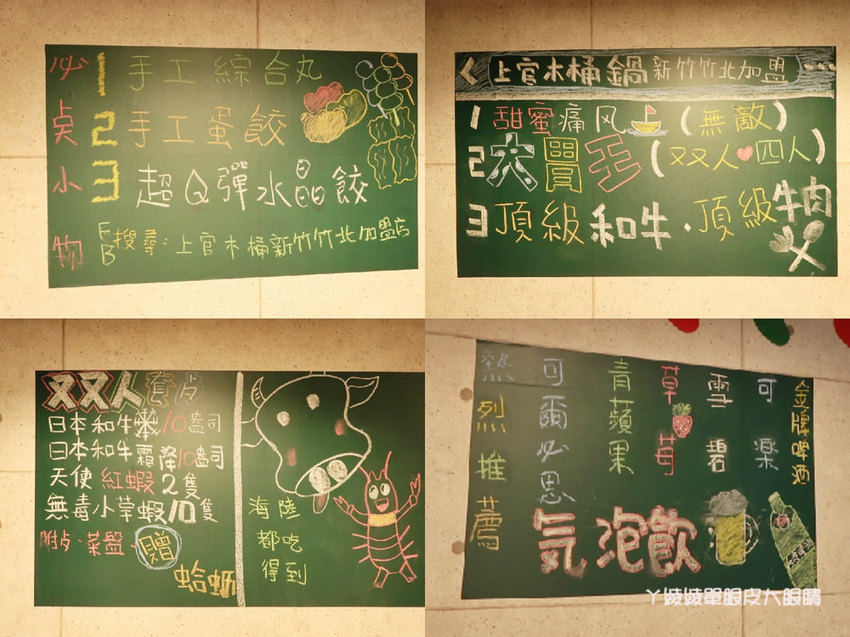 必点小物
1 手工綜合丸
2 手工蛋餃
3 超Q彈水晶餃
FB搜尋:上官木桶新竹竹北加盟店
上官木桶鍋新竹竹北加盟
1 甜蜜痛风(無敵)
2 大冒王(双双人四人)
3 頂級和牛.頂級牛肉
双双人套歺
日本和牛 10盎司
日本和牛霜降10盎司
天使紅蝦2隻
無毒小草蝦10隻
附歺.菜盤.贈
蛤蜊
海陸
都吃
得到
熱烈推薦
可爾必思
青蘋果
草莓
雪碧
可楽
金牌啤酒
気泡飲
ㄚ綾綾單眼皮大眼睛